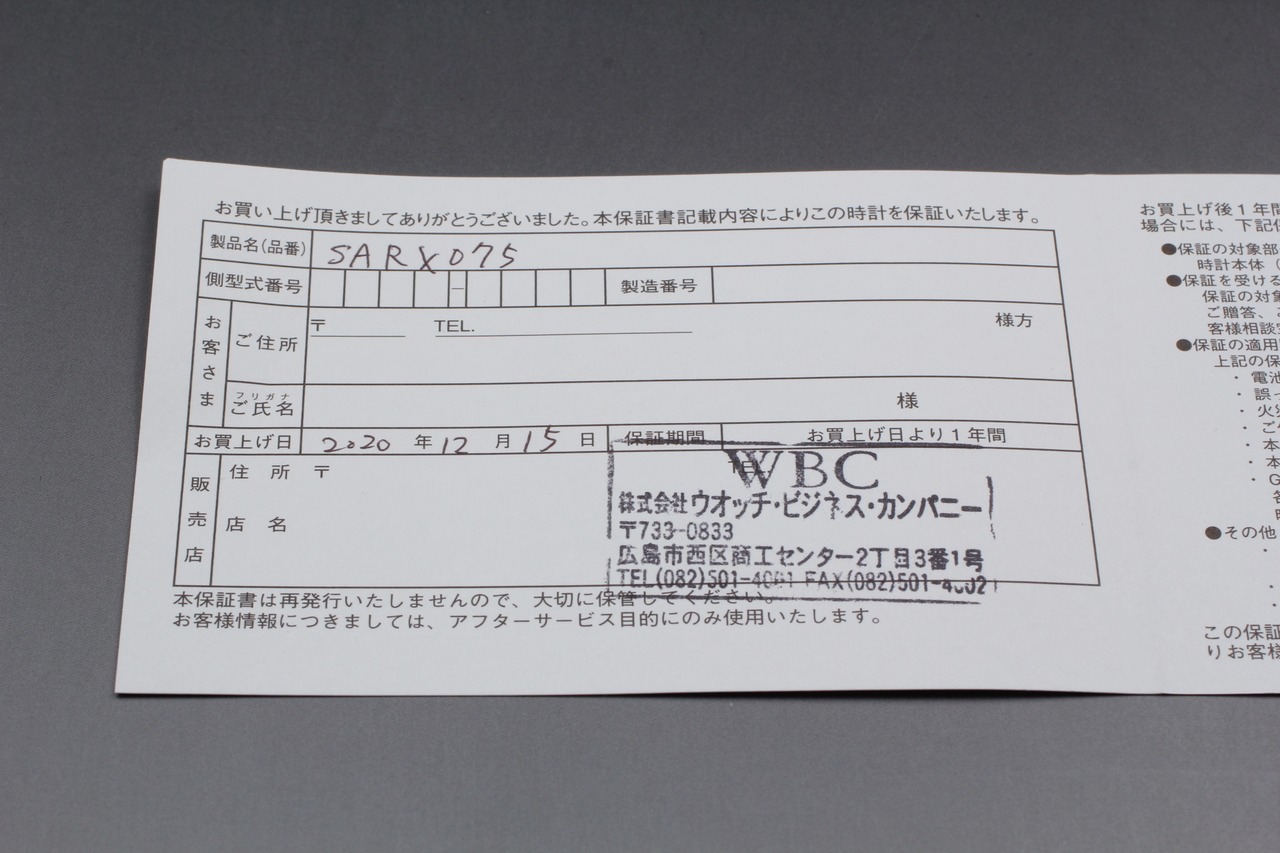 お買い上げ頂きましてありがとうございました。本保証書記載内容によりこの時計を保証いたします。
製品名(品番) SARX075
側型式番号 － 製造番号
お客さま
ご住所 〒 TEL. 様方
フリガナ
ご氏名 様
お買上げ日 2020 年 12 月 15 日 保証期間 お買上げ日より1年間
販売店
住所 〒
店名
WBC
株式会社ウオッチ・ビジネス・カンパニー
〒733-0833
広島市西区商工センター2丁目3番1号
TEL(082)501-4001 FAX(082)501-4002
本保証書は再発行いたしませんので、大切に保管してください。
お客様情報につきましては、アフターサービス目的にのみ使用いたします。
お買上げ後1年間
場合には、下記
●保証の対象部
時計本体（
●保証を受ける
保証の対象
ご贈答、
客様相談
●保証の適用
上記の保
・電池
・誤っ
・火災
・ご
・本
・本
・G
●その他
この保証
りお客様